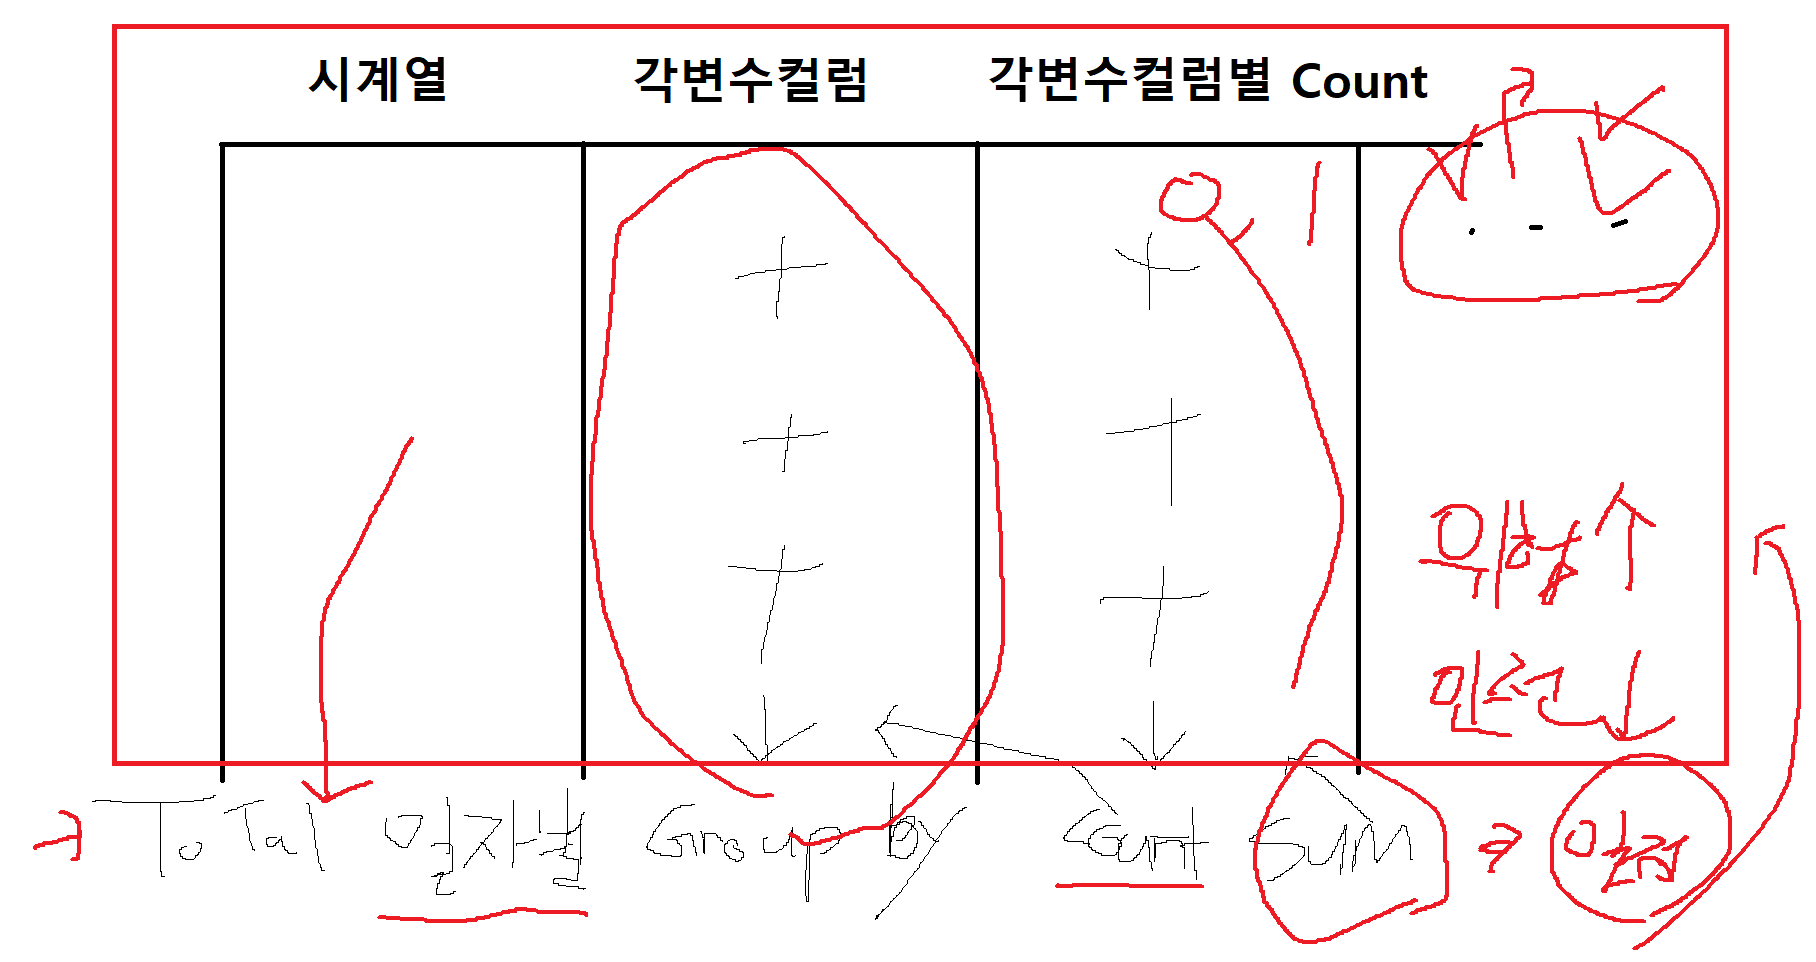 시계열 각변수컬럼 각변수컬럼별 Count
유형별 ↑
↓
→ Total 일자별 Group by Count SUM ⇒